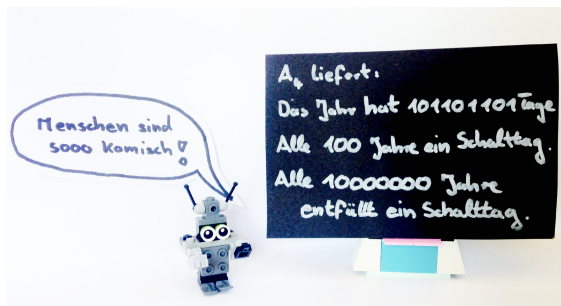 Menschen sind
sooo komisch!
A4 liefert:
Das Jahr hat 101101101 Tage
Alle 100 Jahre ein Schalttag.
Alle 10000000 Jahre
entfällt ein Schalttag.